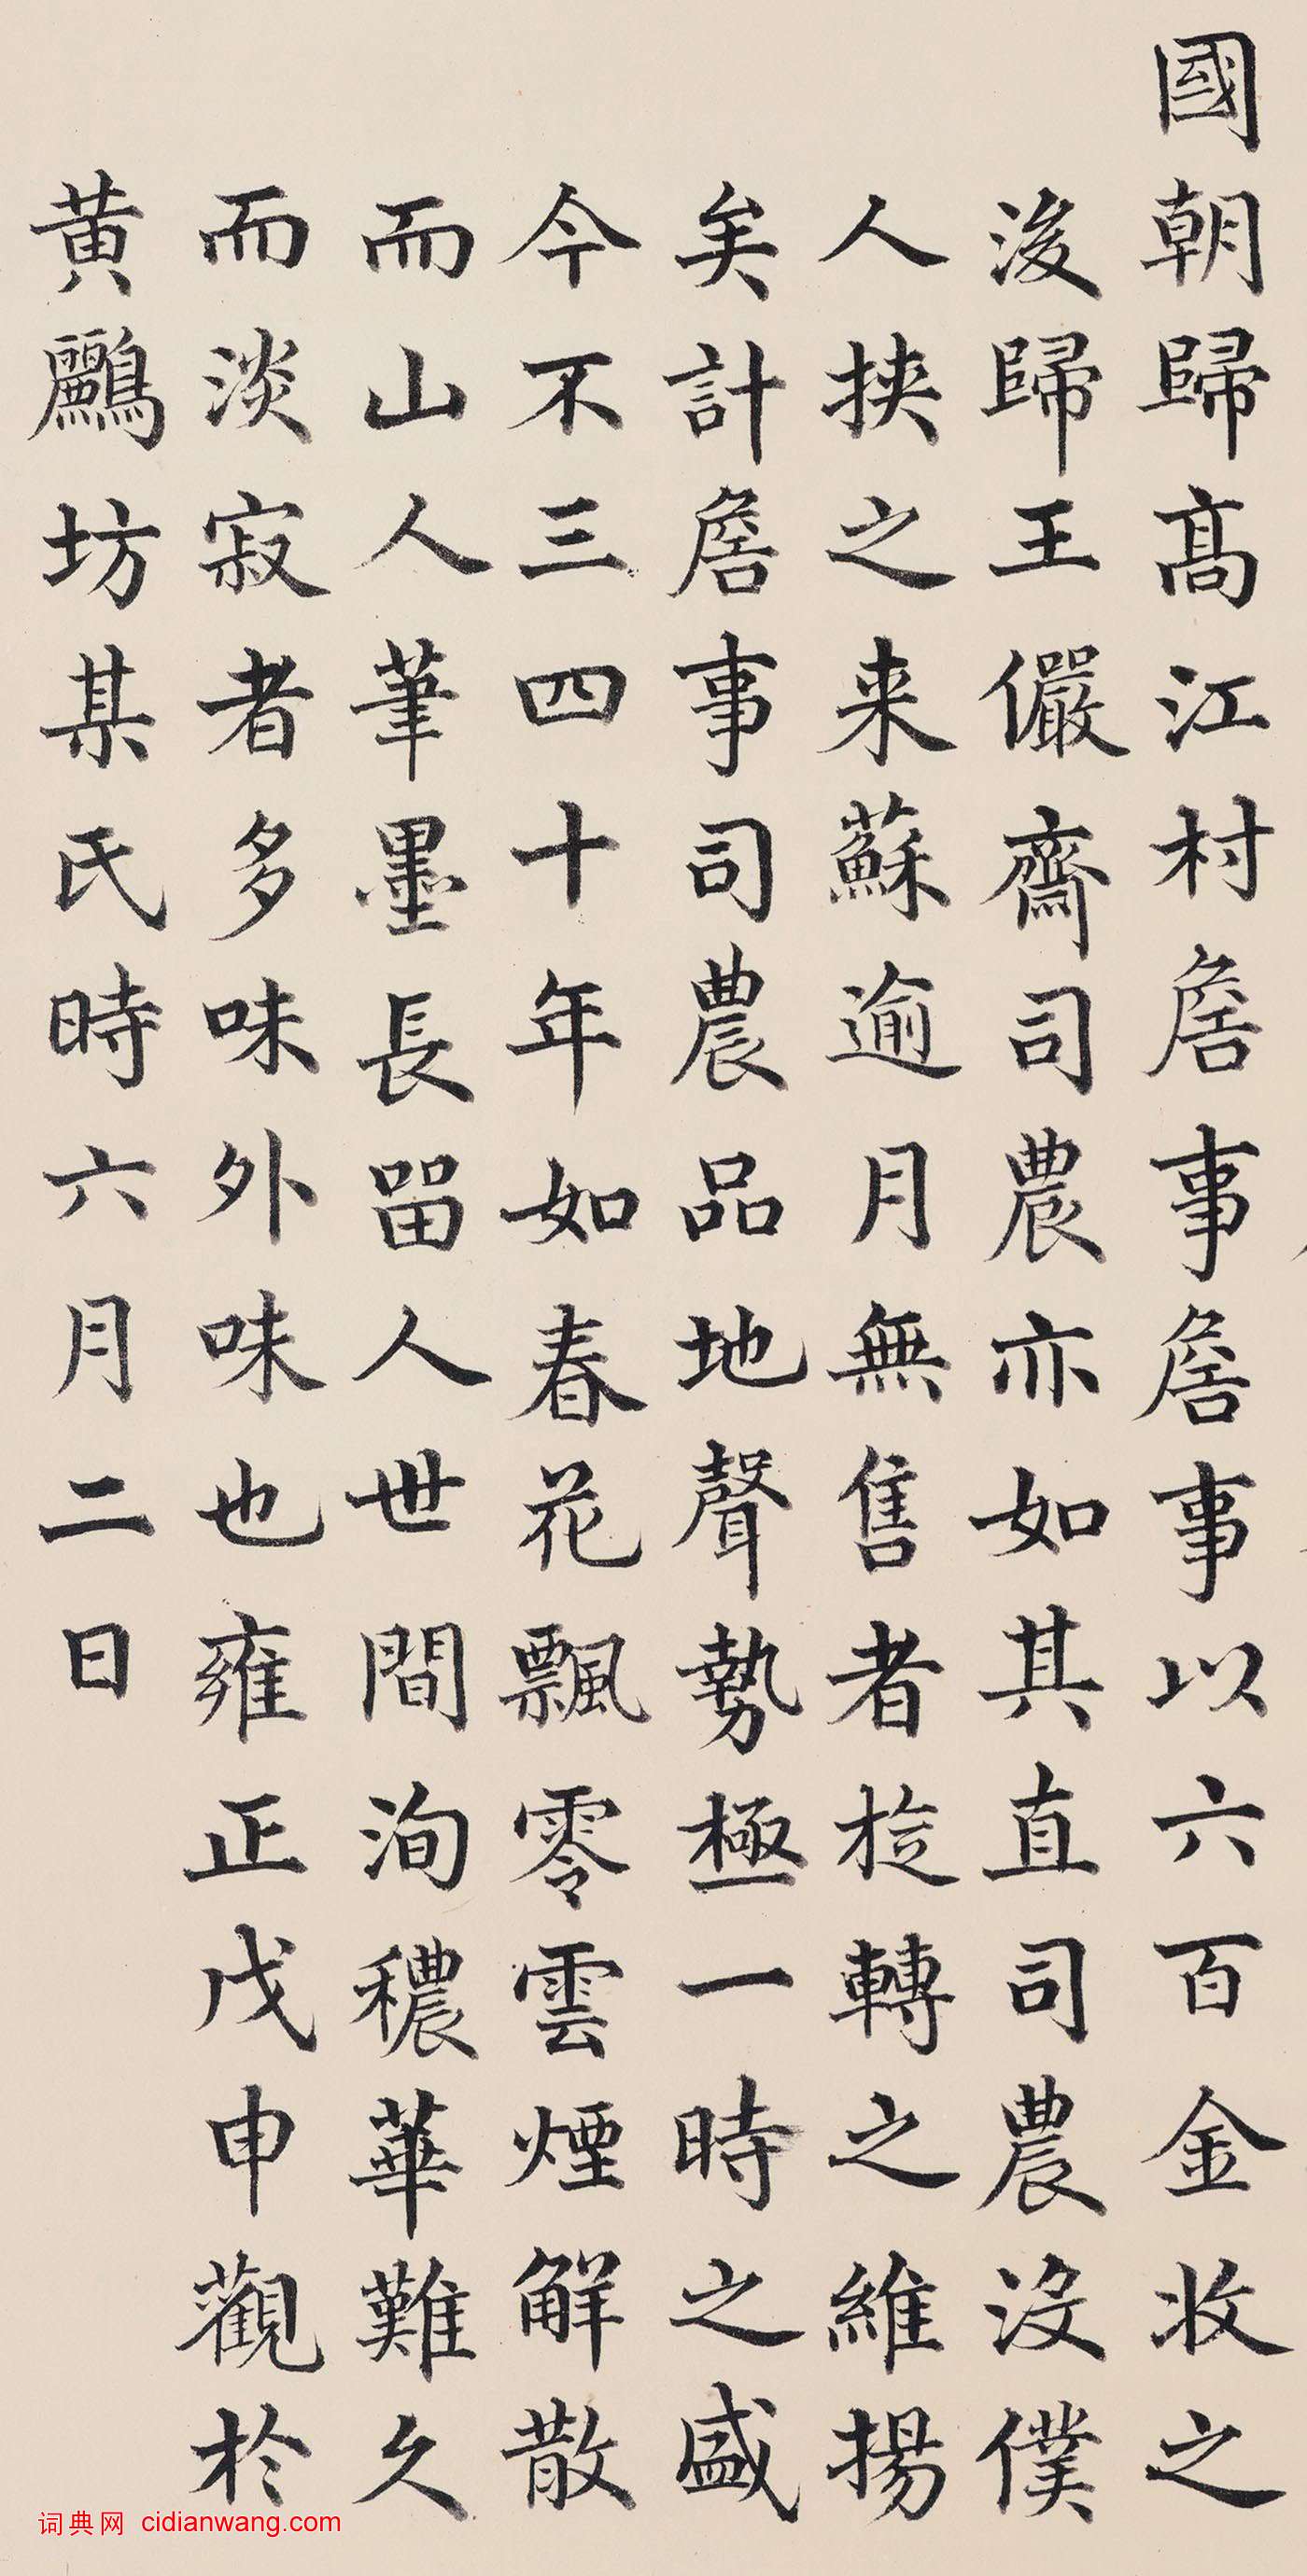 國朝歸高江村詹事詹事以六百金收之
後歸王儼齋司農亦如其直司農沒僕
人挾之来蘇逾月無售者旋轉之維揚
矣計詹事司農品地聲勢極一時之盛
今不三四十年如春花飄零雲煙解散
而山人筆墨長留人世間洵穠華難久
而淡寂者多味外味也雍正戊申觀於
黃鸝坊某氏時六月二日
词典网 cidianwang.com